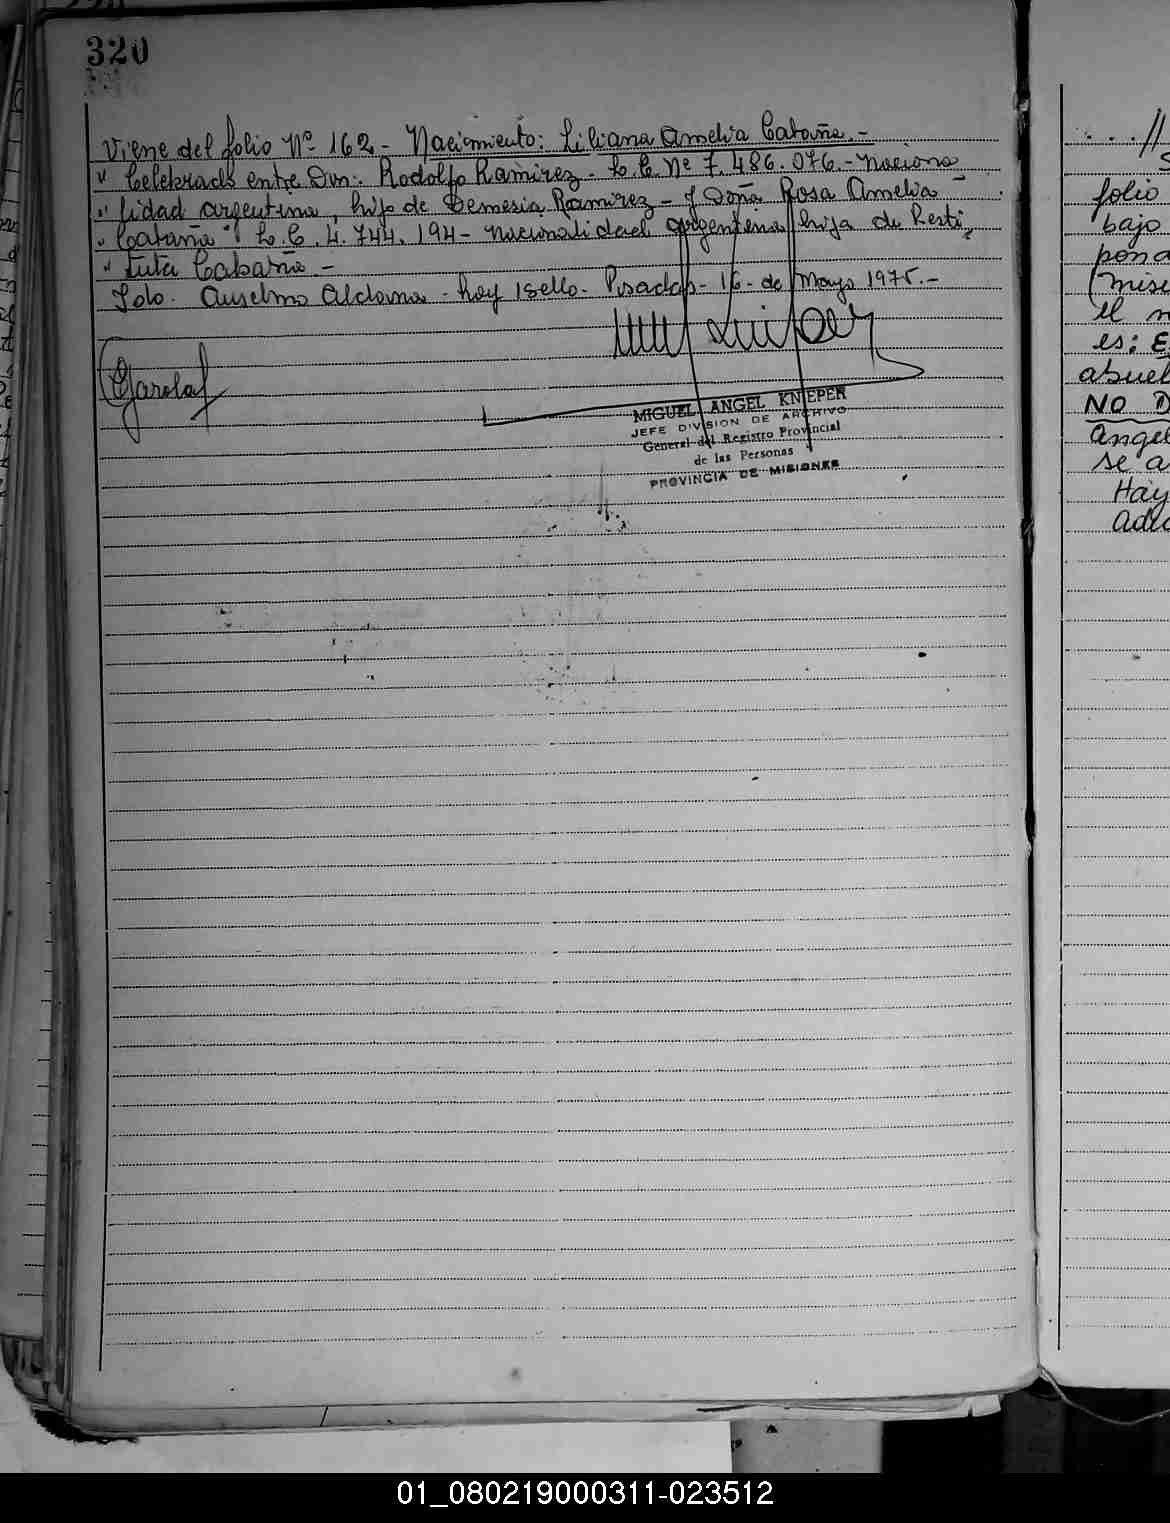 320
Viene del folio Nº 162 - Nacimiento: Liliana Amelia Cabaña.-
" Celebrado entre Don: Rodolfo Ramirez - L.E. Nº 7.486.076.- naciona
" lidad argentina, hijo de Demesia Ramirez - y Doña Rosa Amelia -
" Cabaña" L.C. 4.744.194 - nacionalidad argentina hija de Resti
" tuta Cabaña -
Fdo. Anselmo Aldama - hay 1 sello. Posadas - 16 - de Mayo 1975.-
MIGUEL ANGEL KNIEPER
JEFE DIVISION DE ARCHIVO
General del Registro Provincial
de las Personas
PROVINCIA DE MISIONES
folio
bajo
(Misi
el n
es: E
abuel
NO D
angel
se a
Hay
01_080219000311-023512